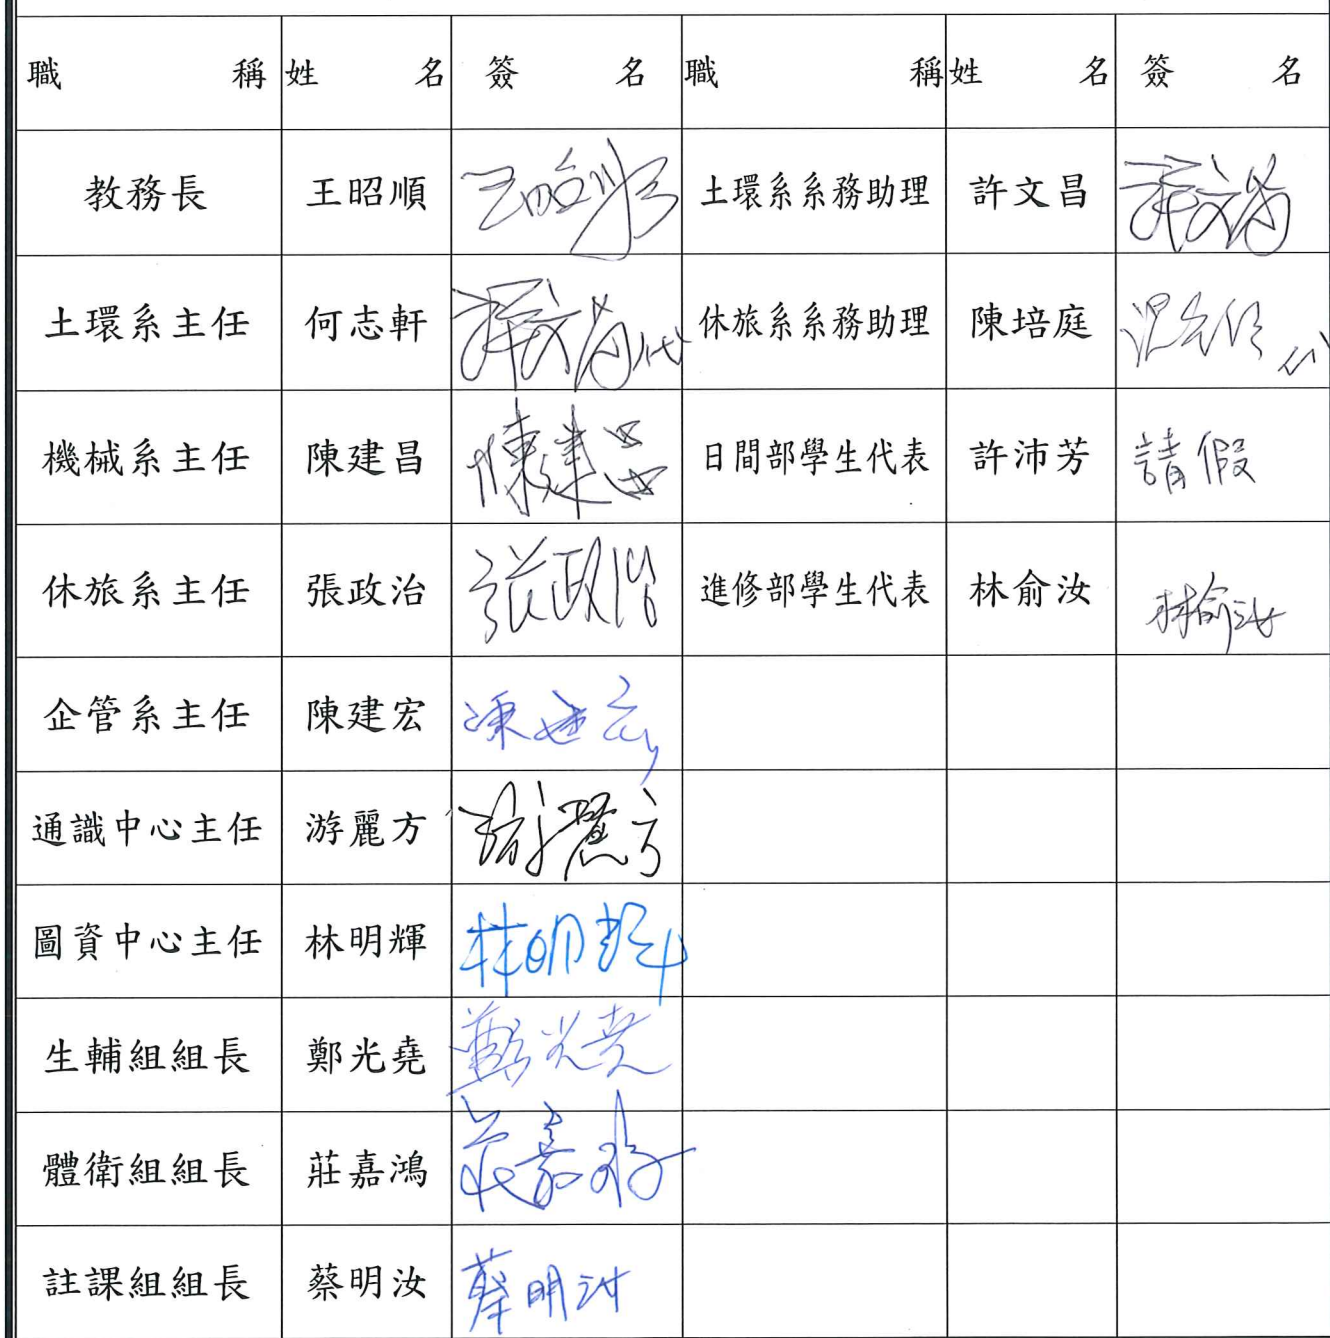 職稱 姓名 簽名 職稱 姓名 簽名
教務長 王昭順 王昭順 土環系系務助理 許文昌 許文昌
土環系主任 何志軒 許文昌代 休旅系系務助理 陳培庭 代
機械系主任 陳建昌 陳建昌 日間部學生代表 許沛芳 請假
休旅系主任 張政治 張政治 進修部學生代表 林俞汝 林俞汝
企管系主任 陳建宏 陳建宏
通識中心主任 游麗方 游麗方
圖資中心主任 林明輝 林明輝
生輔組組長 鄭光堯 鄭光堯
體衛組組長 莊嘉鴻 莊嘉鴻
註課組組長 蔡明汝 蔡明汝